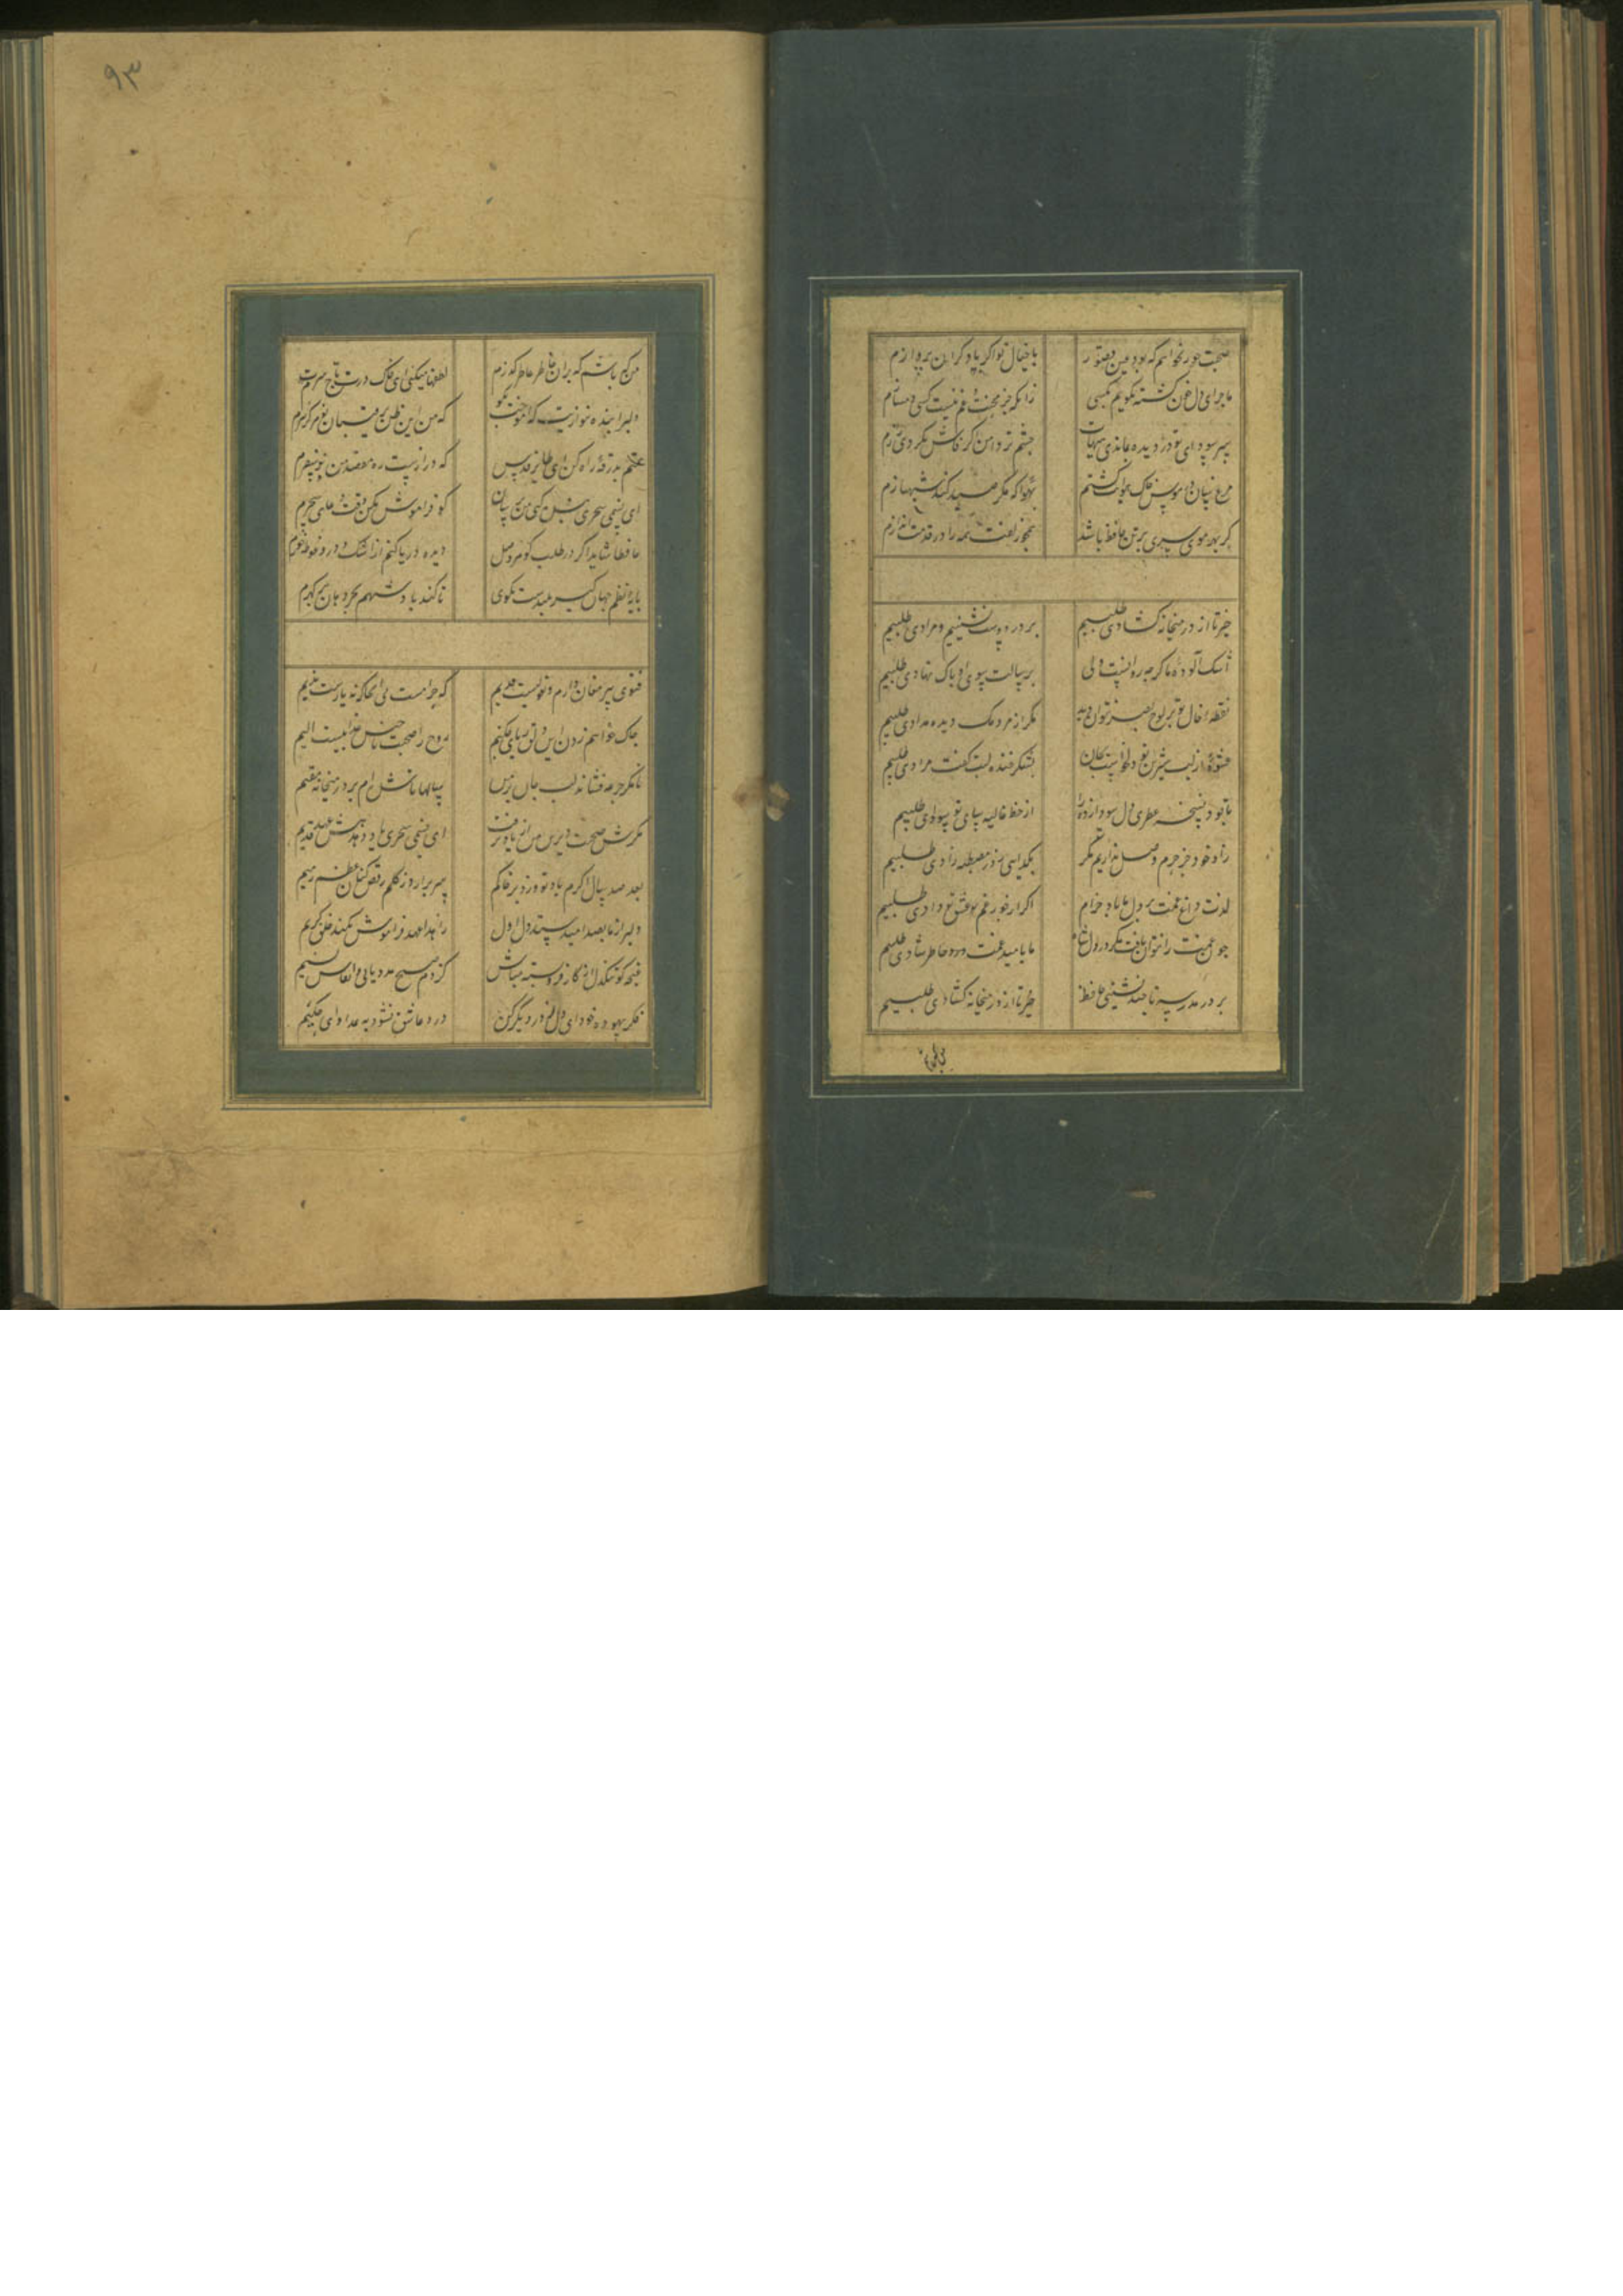 صحبت حور نخواهم که بود عین قصور
با خیال تو اگر با دگران پردازم
ماجرای دل خون گشته نگویم بکسی
زانکه جز محنت و غم نیست کسی دمسازم
سر سودای تو در دیده بماندی پنهان
چشم تر دامن اگر فاش نکردی رازم
مرغ سان از قفس خاک هوایی گشتم
بهوا که مگر صید کند شهبازم
گر بهر موی سری بر تن حافظ باشد
همچو زلفت همه را در قدمت اندازم
خیز تا از در میخانه گشادی طلبیم
بر در دوست نشینیم و مرادی طلبیم
اشک آلوده ما گر چه روانست ولی
برسالت سوی او پاک نهادی طلبیم
نقطه خال تو بر لوح بصر نتوان دید
مگر از مردمک دیده مدادی طلبیم
عشوه از لب شیرین تو دل خواست بجان
بشکر خنده لبت گفت مرادی طلبیم
تا بود نسخه عطری دل سودازده را
از خط غالیه سای تو سوادی طلبیم
زاد راه حرم وصل نداریم مگر
بگدایی ز در مصطبه زادی طلبیم
لذت داغ غمت بر دل ما باد حرام
اگر از جور غم عشق تو دادی طلبیم
چون غمت را نتوان یافت مگر در دل شاد
ما بامید غمت خاطر شادی طلبیم
بر در مدرسه تا چند نشینی حافظ
خیز تا از در میخانه گشادی طلبیم
من که باشم که بران خاطر عاطر گذرم
لطفها میکنی ای خاک درت تاج سرم
دلبرا بنده نوازیت که آموخت بگو
که من این ظن برقیبان تو هرگز نبرم
همتم بدرقه راه کن ای طایر قدس
که درازست ره مقصد و من نوسفرم
ای نسیم سحری بندگی من برسان
گو فراموش مکن وقت دعای سحرم
حافظا شاید اگر در طلب گوهر وصل
دیده دریا کنم از اشک و درو غوطه خورم
پایه نظم جهان گیر بلندست بگوی
تا کند پادشهم بحر دهان پر گهرم
فتوی پیر مغان دارم و قولیست قدیم
که حرامست می آنجا که نه یارست ندیم
چاک خواهم زدن این دلق ریایی چکنم
روح را صحبت ناجنس عذابیست الیم
تا مگر جرعه فشاند لب جانان بر من
سالها تا شده ام بر در میخانه مقیم
مگرش صحبت دیرین من از یاد برفت
ای نسیم سحری یاد دهش عهد قدیم
بعد صد سال اگرم باد تو وزد بر خاکم
سر برآرد ز گلم رقص کنان عظم رمیم
دلبر از ما بصد امید ستد دل اول
را بدا عهد فراموش نکند خلق کریم
غنچه گو تنگدل از کار فروبسته مباش
کز دم صبح مدد یابی و انفاس نسیم
فکر بهبود خود ای دل ز در دیگر کن
درد عاشق نشود به بمداوای حکیم
من که باشم
۹۳